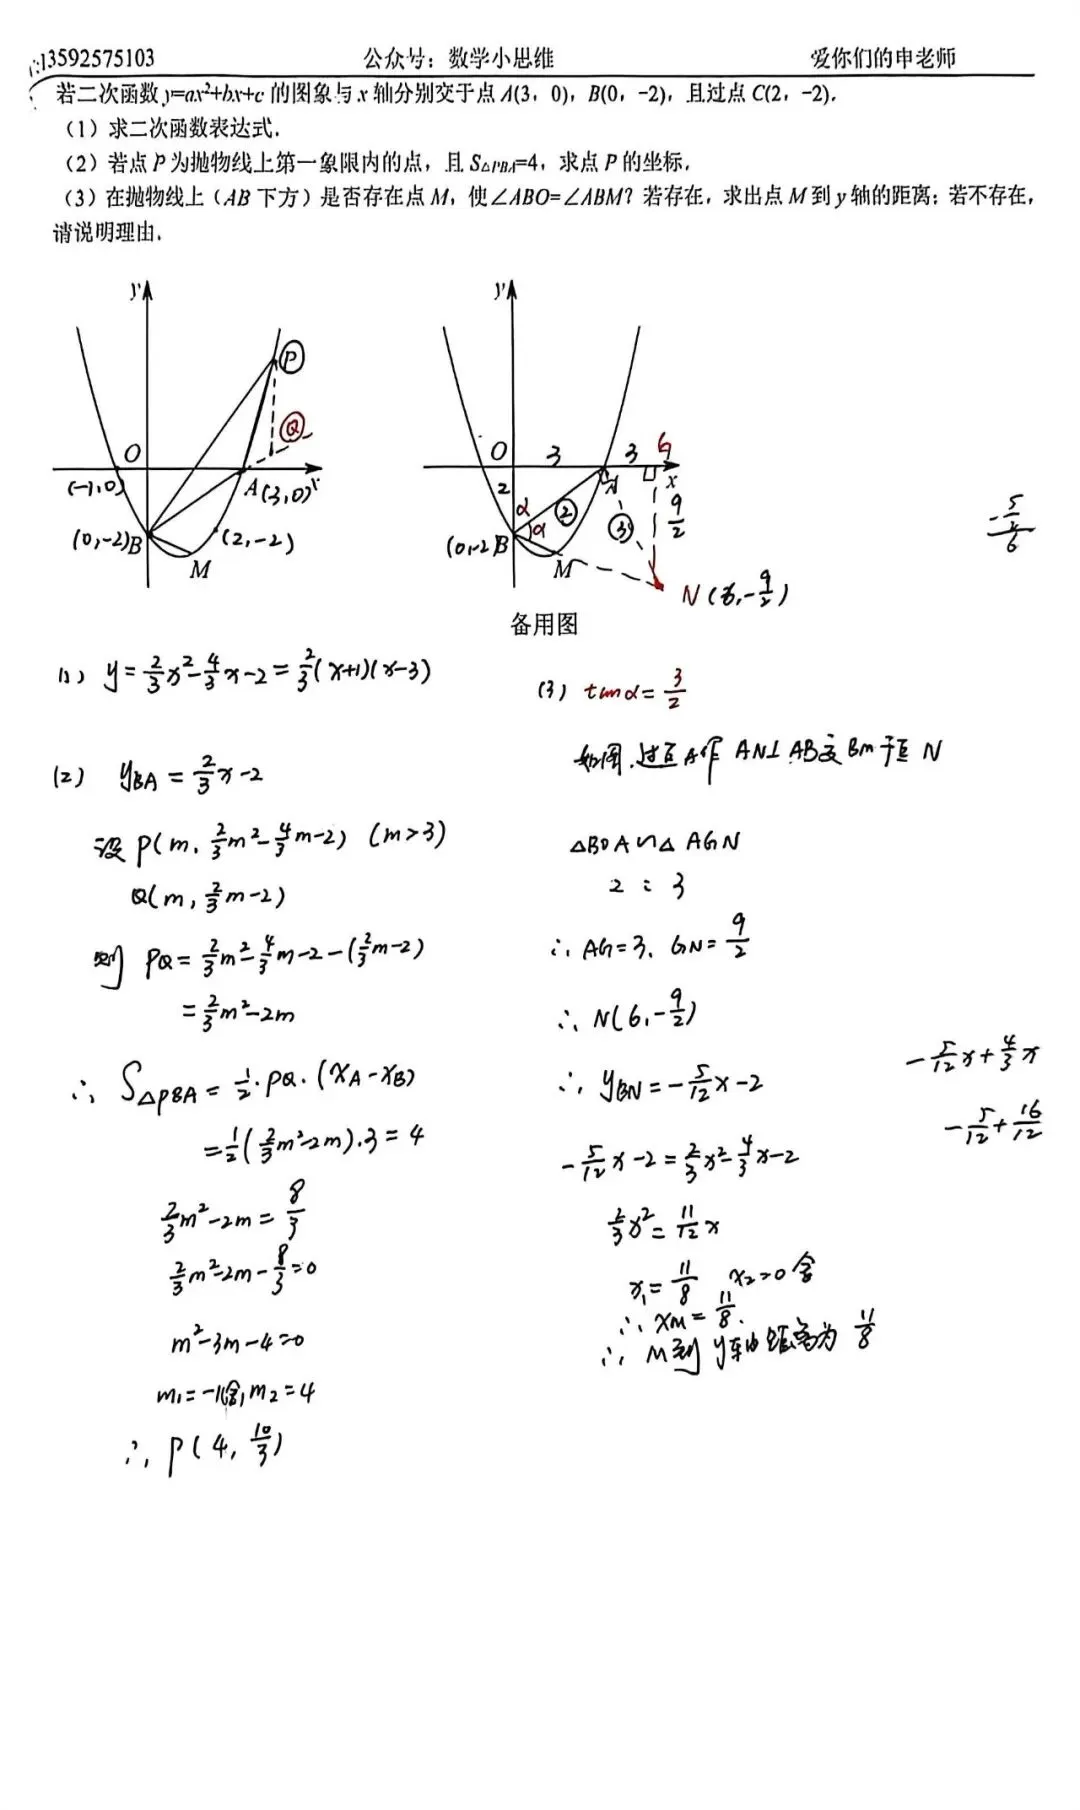 :13592575103 公众号：数学小思维 爱你们的申老师
若二次函数y=ax²+bx+c 的图象与 x 轴分别交于点 A(3，0)，B(0，-2)，且过点 C(2，-2)．
（1）求二次函数表达式．
（2）若点 P 为抛物线上第一象限内的点，且 S△PBA=4，求点 P 的坐标．
（3）在抛物线上（AB 下方）是否存在点 M，使∠ABO=∠ABM？若存在，求出点 M 到 y 轴的距离；若不存在，
请说明理由．
y
P
Q
O
(-1,0)
A(3,0) x
(0,-2)B
(2,-2)
M
y
O 3 3 G
A x
2 α ② 9/2
α ③
(0,-2)B
M
N(6,-9/2)
备用图
-5/2
6
(1) y=2/3x²-4/3x-2=2/3(x+1)(x-3)
(2) yBA=2/3x-2
设P(m,2/3m²-4/3m-2) (m>3)
Q(m,2/3m-2)
则 PQ=2/3m²-4/3m-2-(2/3m-2)
=2/3m²-2m
∴ S△PBA=1/2·PQ·(xA-xB)
=1/2(2/3m²-2m)·3=4
2/3m²-2m=8/3
2/3m²-2m-8/3=0
m²-3m-4=0
m₁=-1(舍),m₂=4
∴ P(4,10/3)
(3) tanα=3/2
如图,过点A作 AN⊥AB交BM于点N
△BOA∽△AGN
2 : 3
∴ AG=3, GN=9/2
∴ N(6,-9/2)
∴ yBN=-5/12x-2
-5/12x-2=2/3x²-4/3x-2
2/3x²=11/12x
x₁=11/8 x₂=0舍
∴ xM=11/8.
∴ M到y轴的距离为 11/8
-5/12x+4/3x
-5/12+16/12